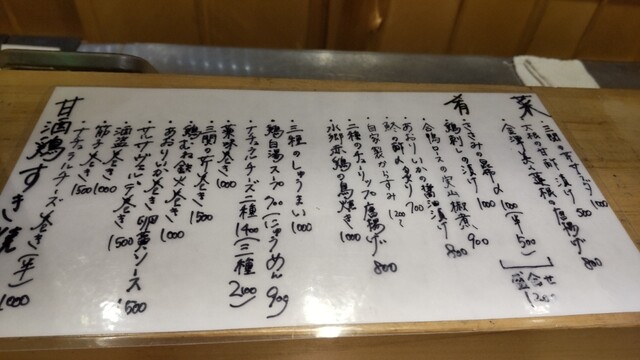 菜肴
・三関のせりサラダ 1000
・大根の甘酢漬け 500
・会津人参と蓮根の唐揚げ 800
・ささみの昆布〆 1000 (半500)
盛合せ 1200
・鶏刺しの漬け 1000
・合鴨ロースの実山椒煮 900
・あおりいかの醤油漬け 800
・鯵の酢〆炙り 700
・自家製からすみ 1200
・二種のチューリップ唐揚げ 800
・水郷赤鶏の鳥焼き 1000
・三種のしゅうまい 1000
・鶏白湯スープ 700 (にゅうめん 900)
・ナチュラルチーズ二種 1400 (三種 2100)
・薬味巻き 1000
・三関せり巻き 1500
・鶏むね鉄火巻き 1000
・あおりいか巻き 1000
・サルサヴェルデ巻き 卵黄ソース 1500
・酒盗巻き 1500
・筋子巻き 1000
・ナチュラルチーズ巻き(半) 1000
1500
甘酒鶏すき焼